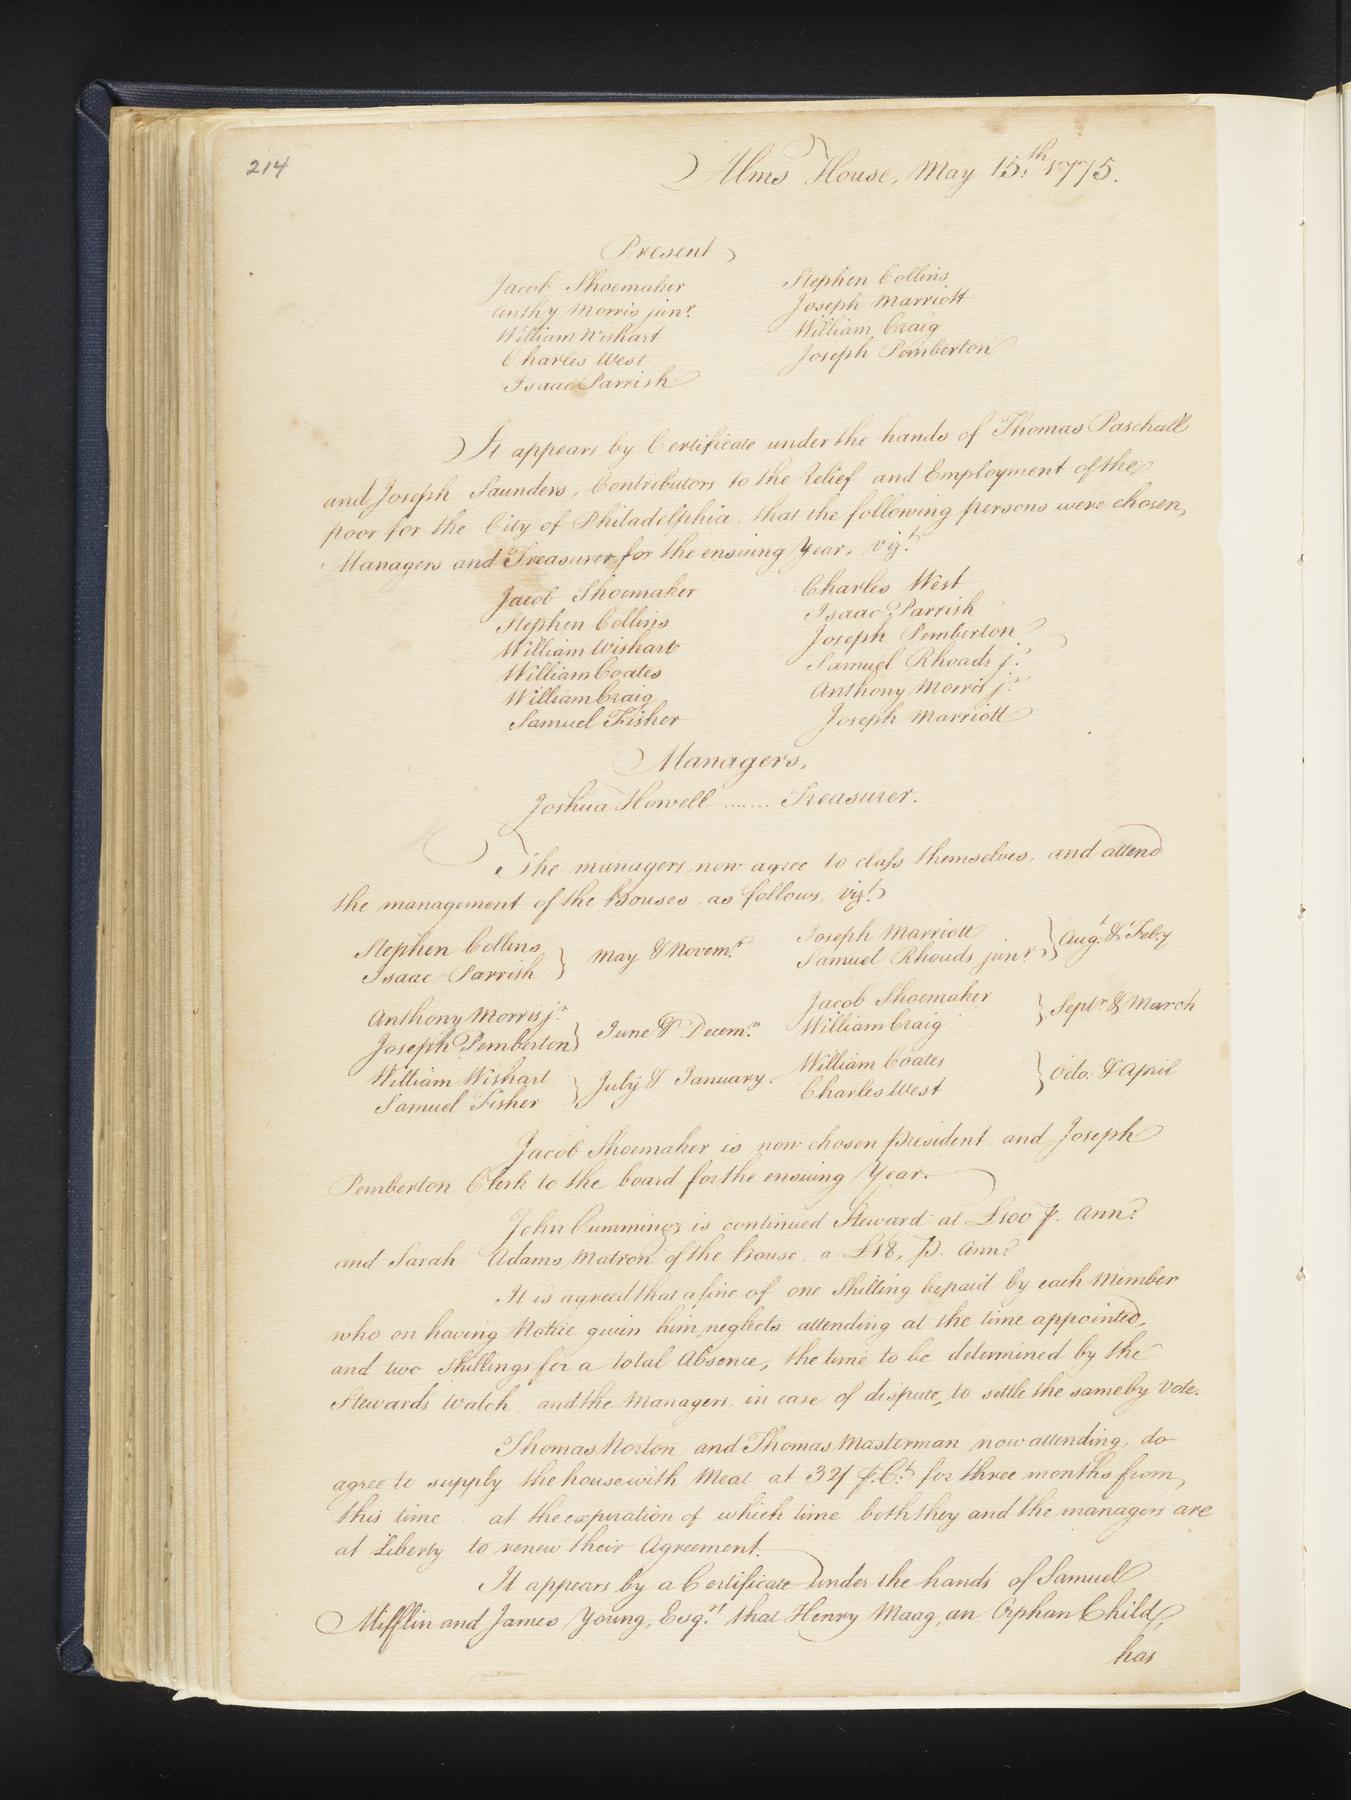 214
Alms House, May 15th 1775.
Present
Jacob Shoemaker
Anthy Morris junr.
William Wishart
Charles West
Isaac Parrish
Stephen Collins
Joseph Marriott
William Craig
Joseph Pemberton
It appears by Certificate under the hands of Thomas Paschall
and Joseph Saunders, Contributors to the Relief and Employment of the
poor for the City of Philadelphia, that the following persons were chosen,
Managers and Treasurer for the ensuing Year, vizt.
Jacob Shoemaker
Stephen Collins
William Wishart
William Coates
William Craig
Samuel Fisher
Charles West
Isaac Parrish
Joseph Pemberton
Samuel Rhoads jr.
Anthony Morris jr.
Joseph Marriott
Managers,
Joshua Howell ....... Treasurer.
The managers now agree to class themselves, and attend
the management of the houses as follows, vizt.
Stephen Collins
Isaac Parrish } May & Novemr.
Anthony Morris jr.
Joseph Pemberton } June & Decemr.
William Wishart
Samuel Fisher } July & January.
Joseph Marriott
Samuel Rhoads junr. } Augt. & Feby
Jacob Shoemaker
William Craig } Septr. & March
William Coates
Charles West } Octo. & April
Jacob Shoemaker is now chosen president and Joseph
Pemberton Clerk to the board for the ensuing Year.
John Cummings is continued Steward at £100 p. Ann:
and Sarah Adams, Matron of the house, a £18, p. Ann:
It is agreed that a fine of one Shilling be paid by each Member
who on having Notice given him, neglects attending at the time appointed,
and two Shillings for a total Absence, the time to be determined by the
Stewards Watch, and the Managers in case of dispute, to settle the same by Vote.
Thomas Norton and Thomas Masterman now attending, do
agree to supply the house with Meat at 32/ p. Ct. for three months from,
this time, at the expiration of which time both they and the managers are
at Liberty to renew their Agreement.
It appears by a Certificate under the hands of Samuel
Mifflin and James Young, Esqrs. that Henry Maag, an Orphan Child,
has